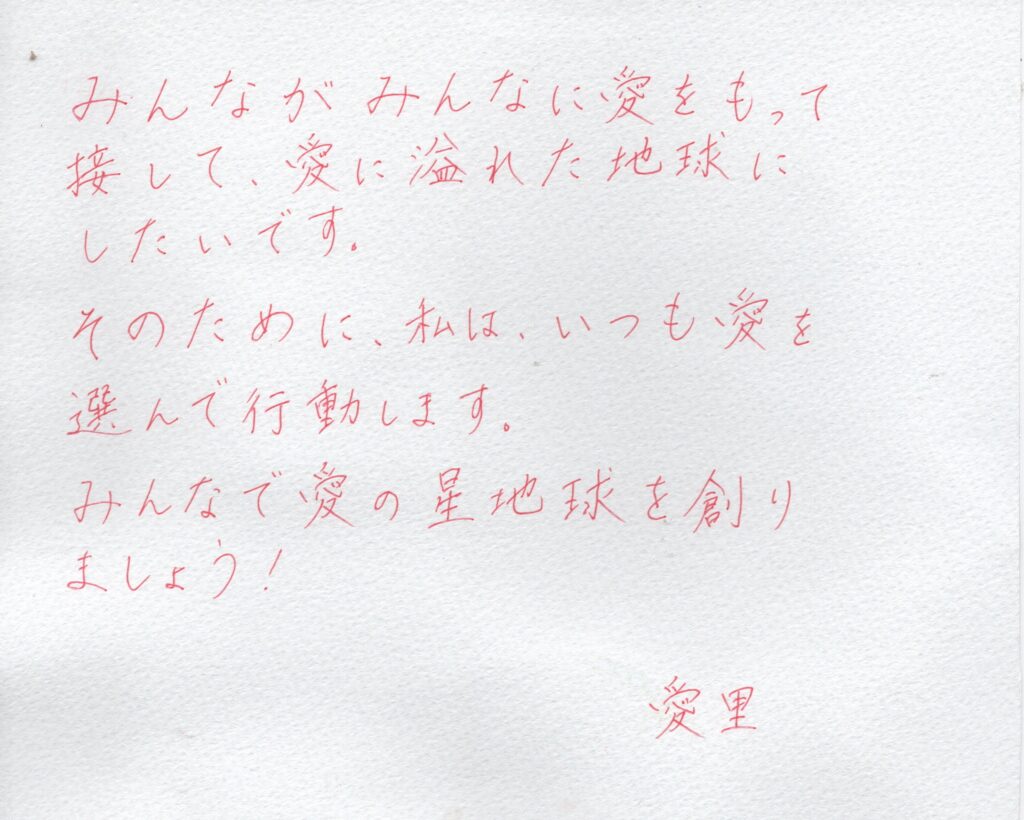 みんながみんなに愛をもって
接して、愛に溢れた地球に
したいです。
そのために、私は、いつも愛を
選んで行動します。
みんなで愛の星地球を創り
ましょう!
愛里